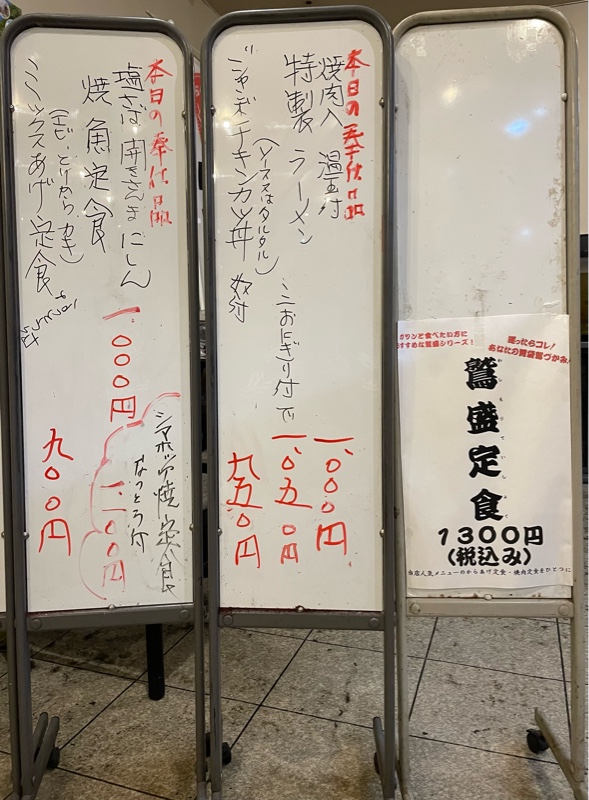 本日の奉仕品
塩さば 開きさんま にしん
焼魚定食
一、000円
ミックスあげ定食
(エビ、とりから、カキ)
九00円
シマホッケ焼定食
なっとう付
一、一00円
本日の奉仕品
焼肉入 温玉付
特製 ラーメン
一、000円
ミニおにぎり付で
一、0五0円
ジャンボチキンカツ丼
(ソースはタルタル)
九五0円
ガツンと食べたい方に
おすすめな鷲盛シリーズ!
迷ったらコレ!
あなたの胃袋鷲づかみ!
鷲盛定食
1300円
(税込み)
当店人気メニューのからあげ定食・焼肉定食をひとつに